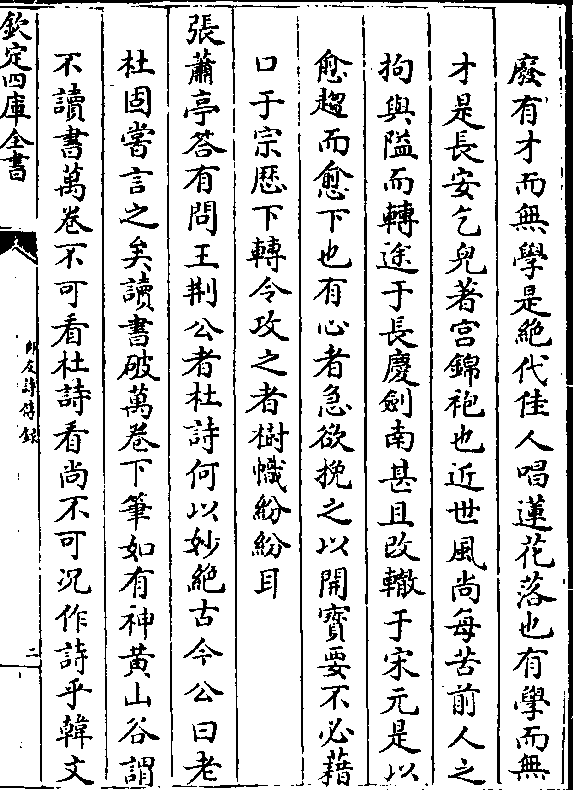 廢有才而無學是絶代佳人唱蓮花落也有學而無
才是長安乞兒著宫錦袍也近世風尚每苦前人之
拘與隘而轉途于長慶劍南甚且改轍于宋元是以
愈趨而愈下也有心者急欲挽之以開寳要不必藉
口于宗厯下轉令攻之者樹幟紛紛耳
張蕭亭答有問王荆公者杜詩何以妙絶古今公曰老
杜固嘗言之矣讀書破萬卷下筆如有神黄山谷謂
不讀書萬卷不可看杜詩看尚不可况作詩乎韓文
欽定四庫全書
師友詩傳録
二